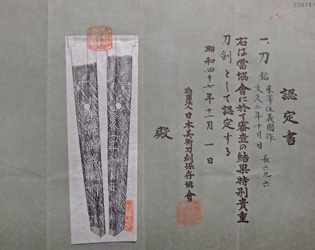 認定書
一、刀 銘 米澤住義國作
文久二年十月日 長六九、六
右は當協會に於て審査の結果特別貴重
刀劍として認定する
昭和四十七年十一月一日
財團法人日本美術刀劍保存協會
殿